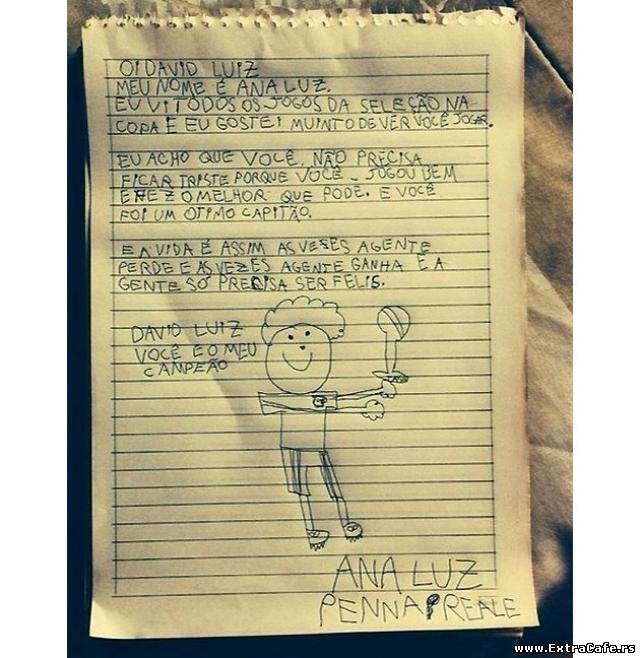 OI DAVID LUIZ
MEU NOME É ANA LUZ.
EU VI TODOS OS JOGOS DA SELEÇÃO NA
COPA E EU GOSTEI MUINTO DE VER VOCÊ JOGAR.
EU ACHO QUE VOCÊ NÃO PRECISA
FICAR TRISTE PORQUE VOCÊ JOGOU BEM
E FEZ O MELHOR QUE PODE. E VOCÊ
FOI UM OTIMO CAPITÃO.
E A VIDA É ASSIM AS VESES AGENTE
PERDE E AS VEZES AGENTE GANHA E A
GENTE SÓ PRECISA SER FELIS.
DAVID LUIZ
VOCÊ E O MEU
CAMPEÃO
ANA LUZ
PENNA PREALE
www.ExtraCafe.rs